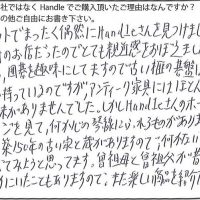 社ではなく Handle でご購入頂いたご理由はなんですか？
の他ご自由にお書き下さい。
トでまったく偶然にHandleさんを見つけまし
のお店だったのでとても親近感をおぼえまし
囲碁を趣味にしてますので古い種の碁盤
持っているのですがアンティーク家具にはほとん
味がありませんでした。しかしHandleさんのホー
ンを見て、何か心の琴線にふれるものがありま
築150年の古い家と蔵がありますので、何か古い
てみようと思ってます。曽祖母と曽祖父が昔
にいたこともありますので、また楽しい